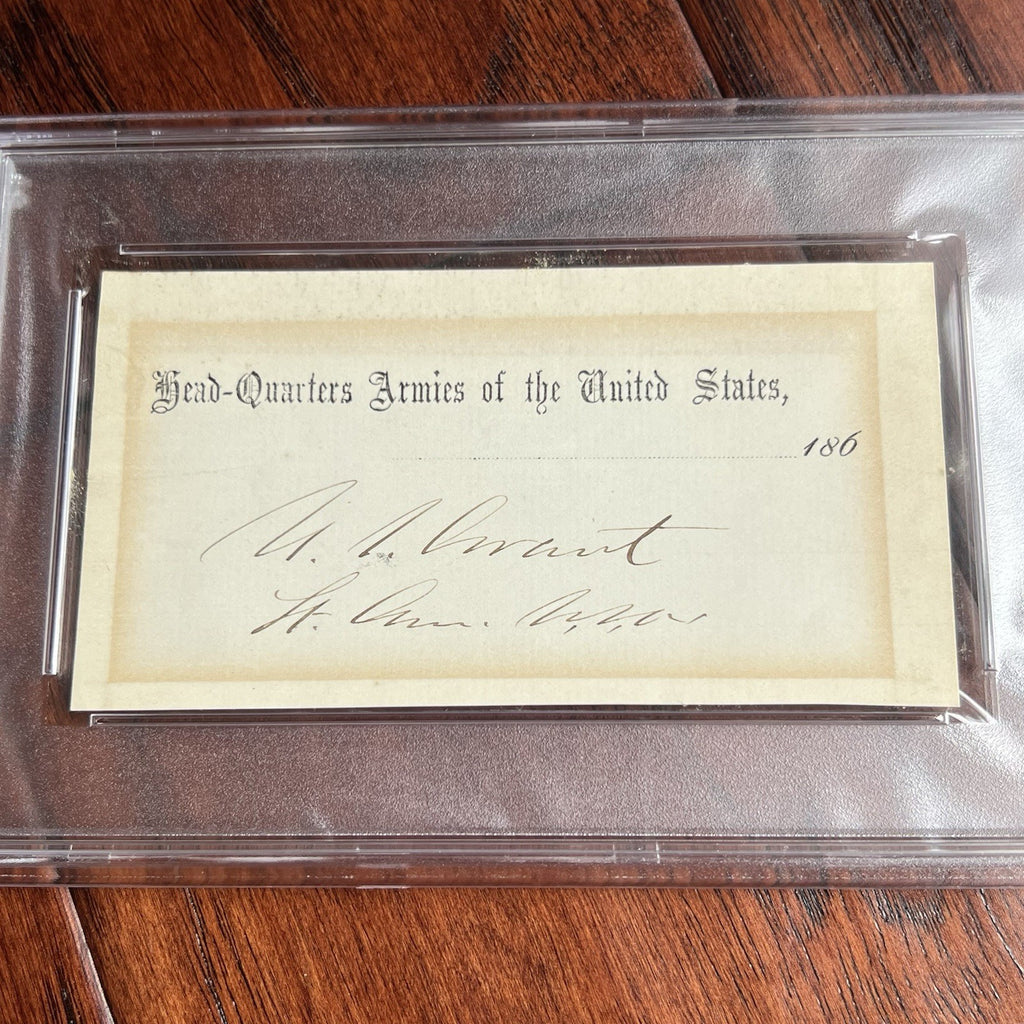 Head-Quarters Armies of the United States,
186
U. S. Grant
Lt. Gen. U.S.A.